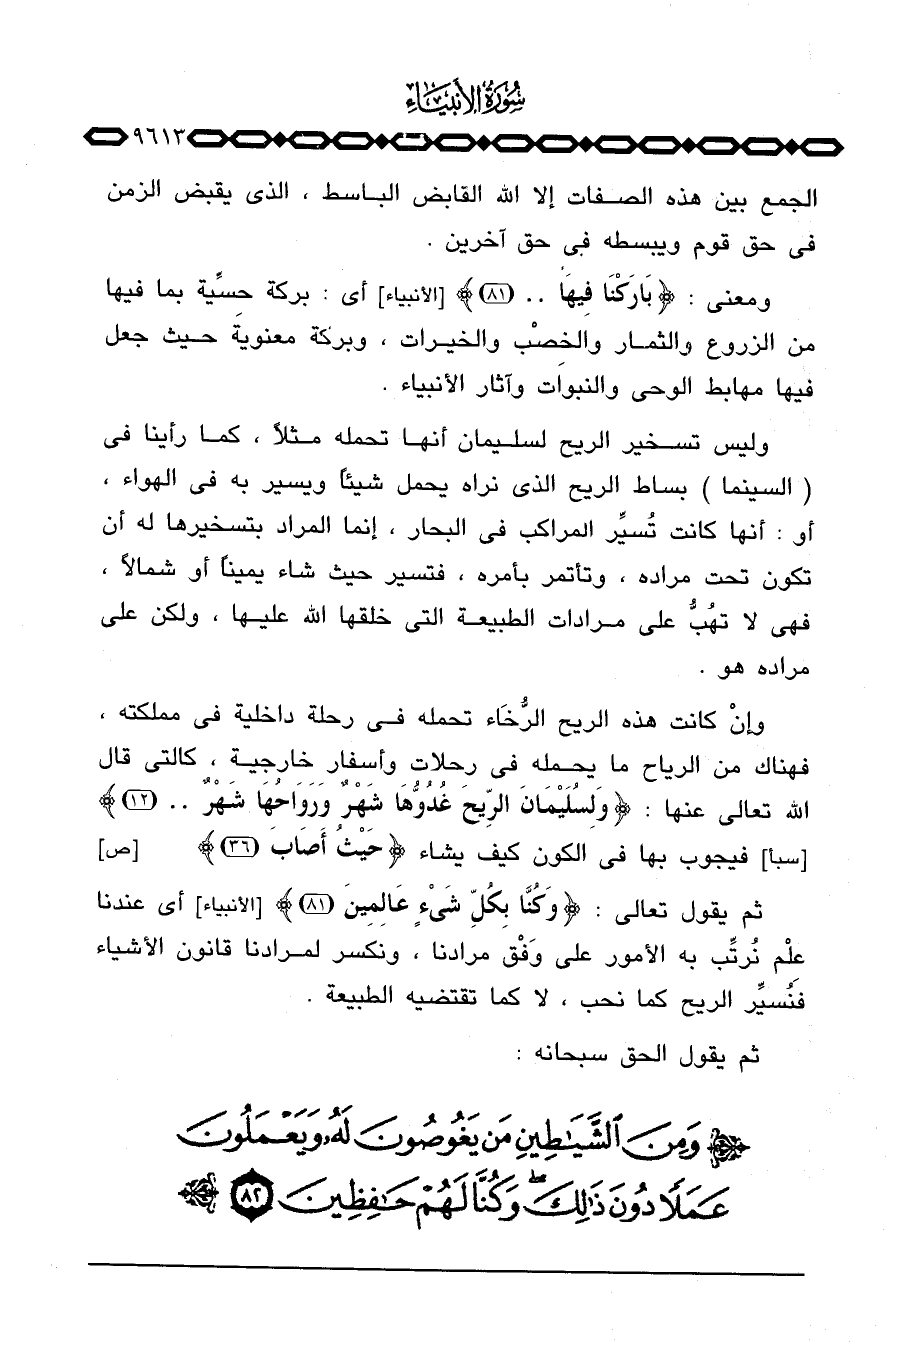 سورة الأنبياء
٩٦١٣
الجمع بين هذه الصفات إلا الله القابض الباسط ، الذى يقبض الزمن
فى حق قوم ويبسطه فى حق آخرين .
ومعنى : ﴿ بَارَكْنَا فِيهَا .. (٨١) ﴾ [الأنبياء] أى : بركة حسِّية بما فيها
من الزروع والثمار والخصْب والخيرات ، وبركة معنوية حيث جعل
فيها مهابط الوحى والنبوات وآثار الأنبياء .
وليس تسخير الريح لسليمان أنها تحمله مثلاً ، كما رأينا فى
( السينما ) بساط الريح الذى نراه يحمل شيئاً ويسير به فى الهواء ،
أو : أنها كانت تُسيِّر المراكب فى البحار ، إنما المراد بتسخيرها له أن
تكون تحت مراده ، وتأتمر بأمره ، فتسير حيث شاء يميناً أو شمالاً ،
فهى لا تهُبُّ على مرادات الطبيعة التى خلقها الله عليها ، ولكن على
مراده هو .
وإنْ كانت هذه الريح الرُّخَاء تحمله فى رحلة داخلية فى مملكته ،
فهناك من الرياح ما يحمله فى رحلات وأسفار خارجية ، كالتى قال
الله تعالى عنها : ﴿ وَلِسُلَيْمَانَ الرِّيحَ غُدُوُّهَا شَهْرٌ وَرَوَاحُهَا شَهْرٌ .. (١٢) ﴾
[سبأ] فيجوب بها فى الكون كيف يشاء ﴿ حَيْثُ أَصَابَ (٣٦) ﴾ [ص]
ثم يقول تعالى : ﴿ وَكُنَّا بِكُلِّ شَىْءٍ عَالِمِينَ (٨١) ﴾ [الأنبياء] أى عندنا
عِلْم نُرتِّب به الأمور على وَفْق مرادنا ، ونكسر لمرادنا قانون الأشياء
فنُسيِّر الريح كما نحب ، لا كما تقتضيه الطبيعة .
ثم يقول الحق سبحانه :
وَمِنَ ٱلشَّيَـٰطِينِ مَن يَغُوصُونَ لَهُۥ وَيَعْمَلُونَ
عَمَلًا دُونَ ذَٰلِكَ ۖ وَكُنَّا لَهُمْ حَـٰفِظِينَ ٨٢